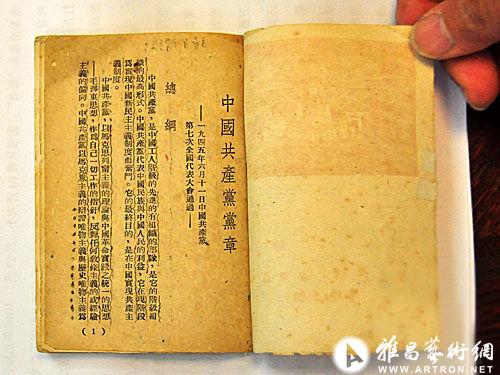 中國共產黨黨章
——一九四五年六月十一日中國共產黨
第七次全國代表大會通過——
總綱
中國共產黨，是中國工人階級的先進的有組織的部隊，是它的階級組
織的最高形式。中國共產黨代表中國民族與中國人民的利益。它在現階段
爲實現中國新民主主義制度而奮鬥。它的最終目的，是在中國實現共產主
義制度。
中國共產黨，以馬克思列甯主義的理論與中國革命實踐之統一的思想
——毛澤東思想，作爲自己一切工作的指針，反對任何教條主義的或經驗
主義的偏向。中國共產黨以馬克思主義的辯證唯物主義與歷史唯物主義爲
(1)
雅昌藝術網
WWW.ARTRON.NET